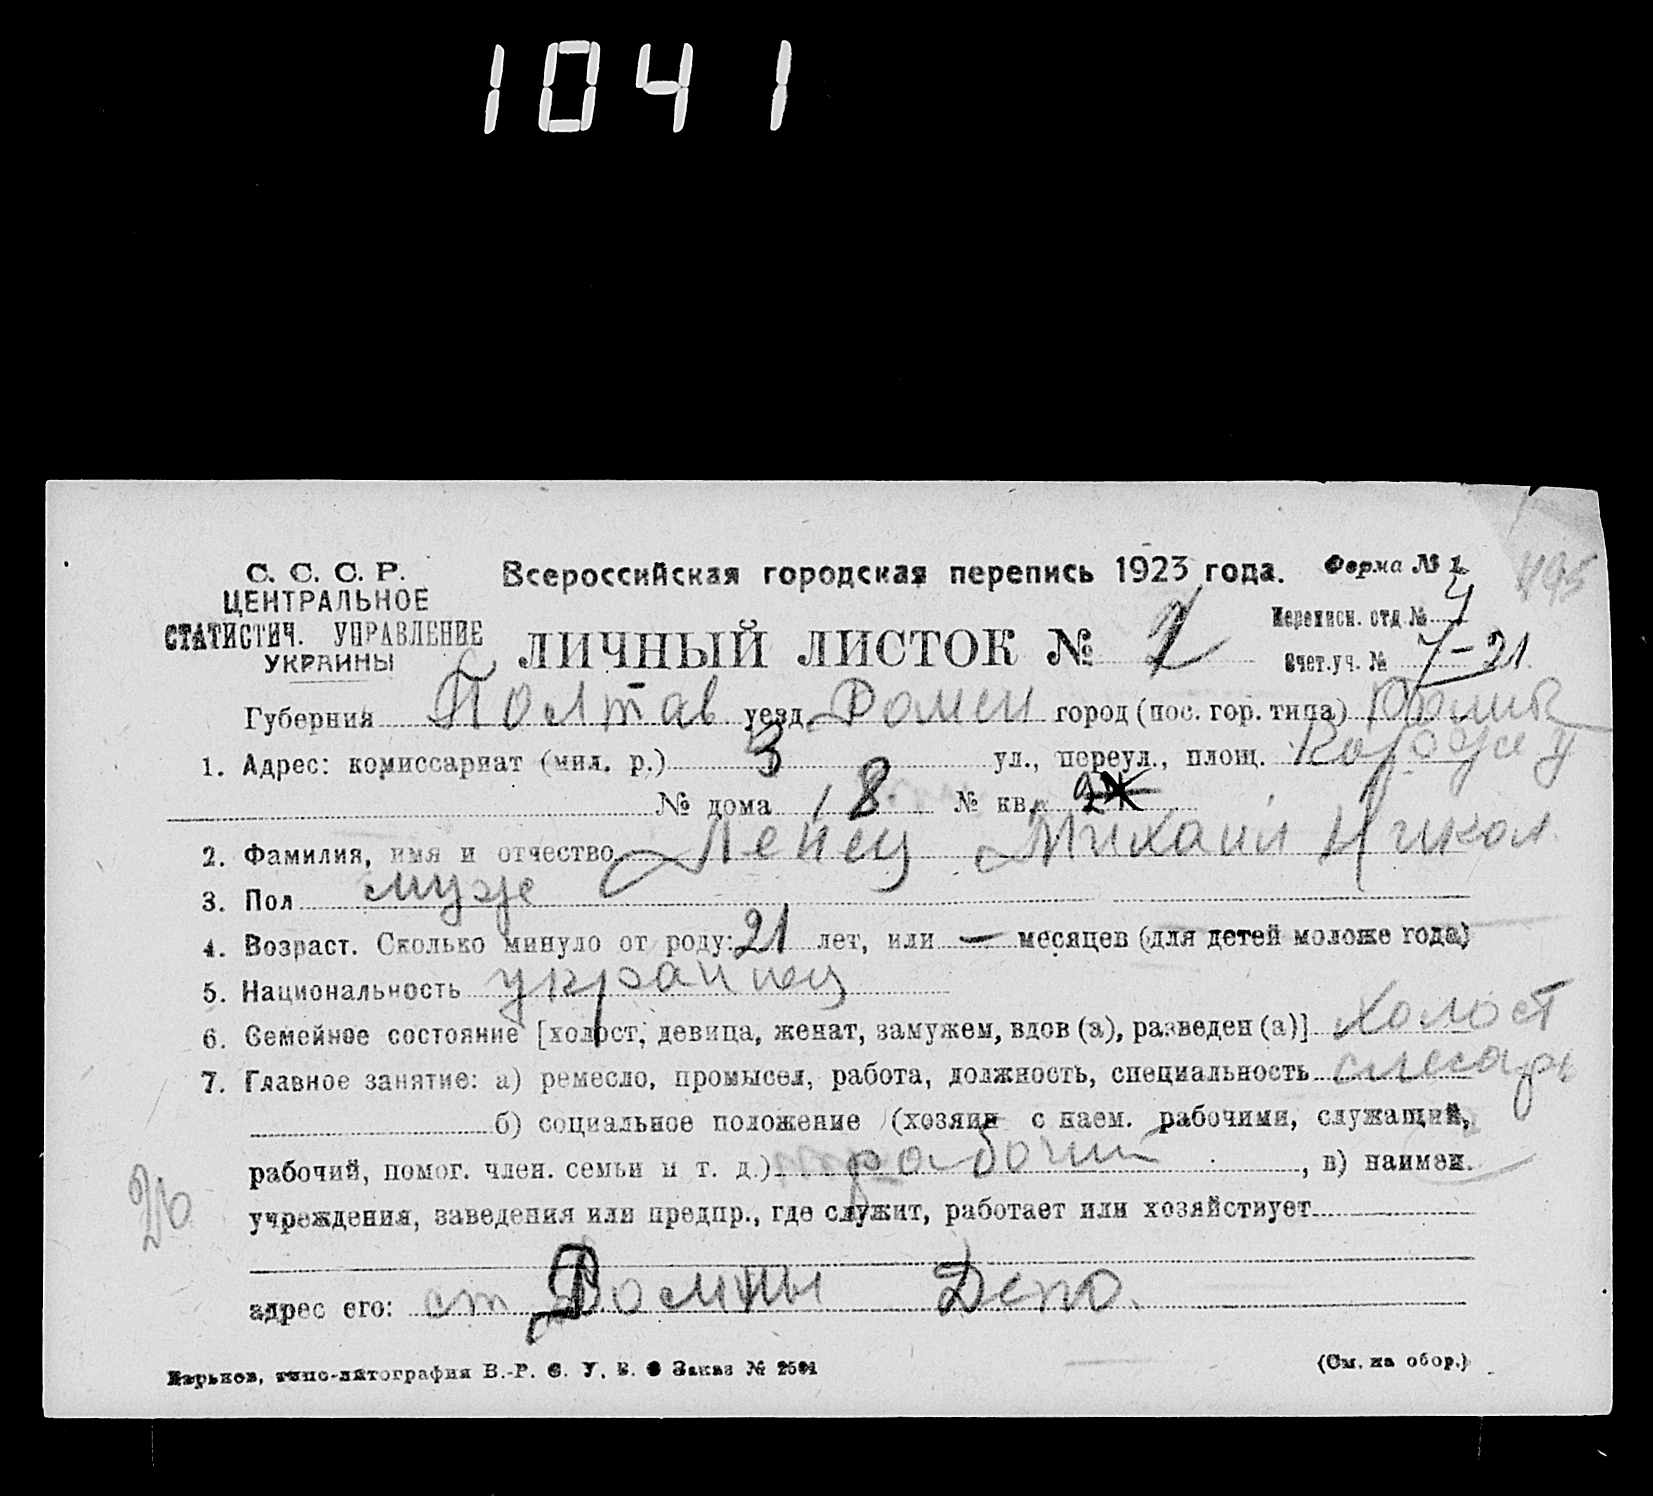 1041
С. С. С. Р.
ЦЕНТРАЛЬНОЕ
СТАТИСТИЧ. УПРАВЛЕНИЕ
УКРАИНЫ
Всероссийская городская перепись 1923 года.
Форма № 1
495
ЛИЧНЫЙ ЛИСТОК № 2
Переписн. отд № 4
Счет.уч. № 7-21
Губерния Полтав уезд Ромен город (пос. гор. типа)
1. Адрес: комиссариат (мил. р.) 3 ул., переул., площ.
№ дома 18 № кв.
2. Фамилия, имя и отчество Ленец Михаил Никол
3. Пол муж
4. Возраст. Сколько минуло от роду: 21 лет, или — месяцев (для детей моложе года)
5. Национальность украинец
6. Семейное состояние [холост, девица, женат, замужем, вдов (а), разведен (а)] Холост
7. Главное занятие: а) ремесло, промысел, работа, должность, специальность слесарь
б) социальное положение (хозяин с наем. рабочими, служащий,
рабочий, помог. член. семьи и т. д.) рабочий, в) наимен.
учреждения, заведения или предпр., где служит, работает или хозяйствует
адрес его: ст Ромны Депо.
Харьков, типо-литография В.-Р. С. У. В. Заказ № 2501
(См. на обор.)